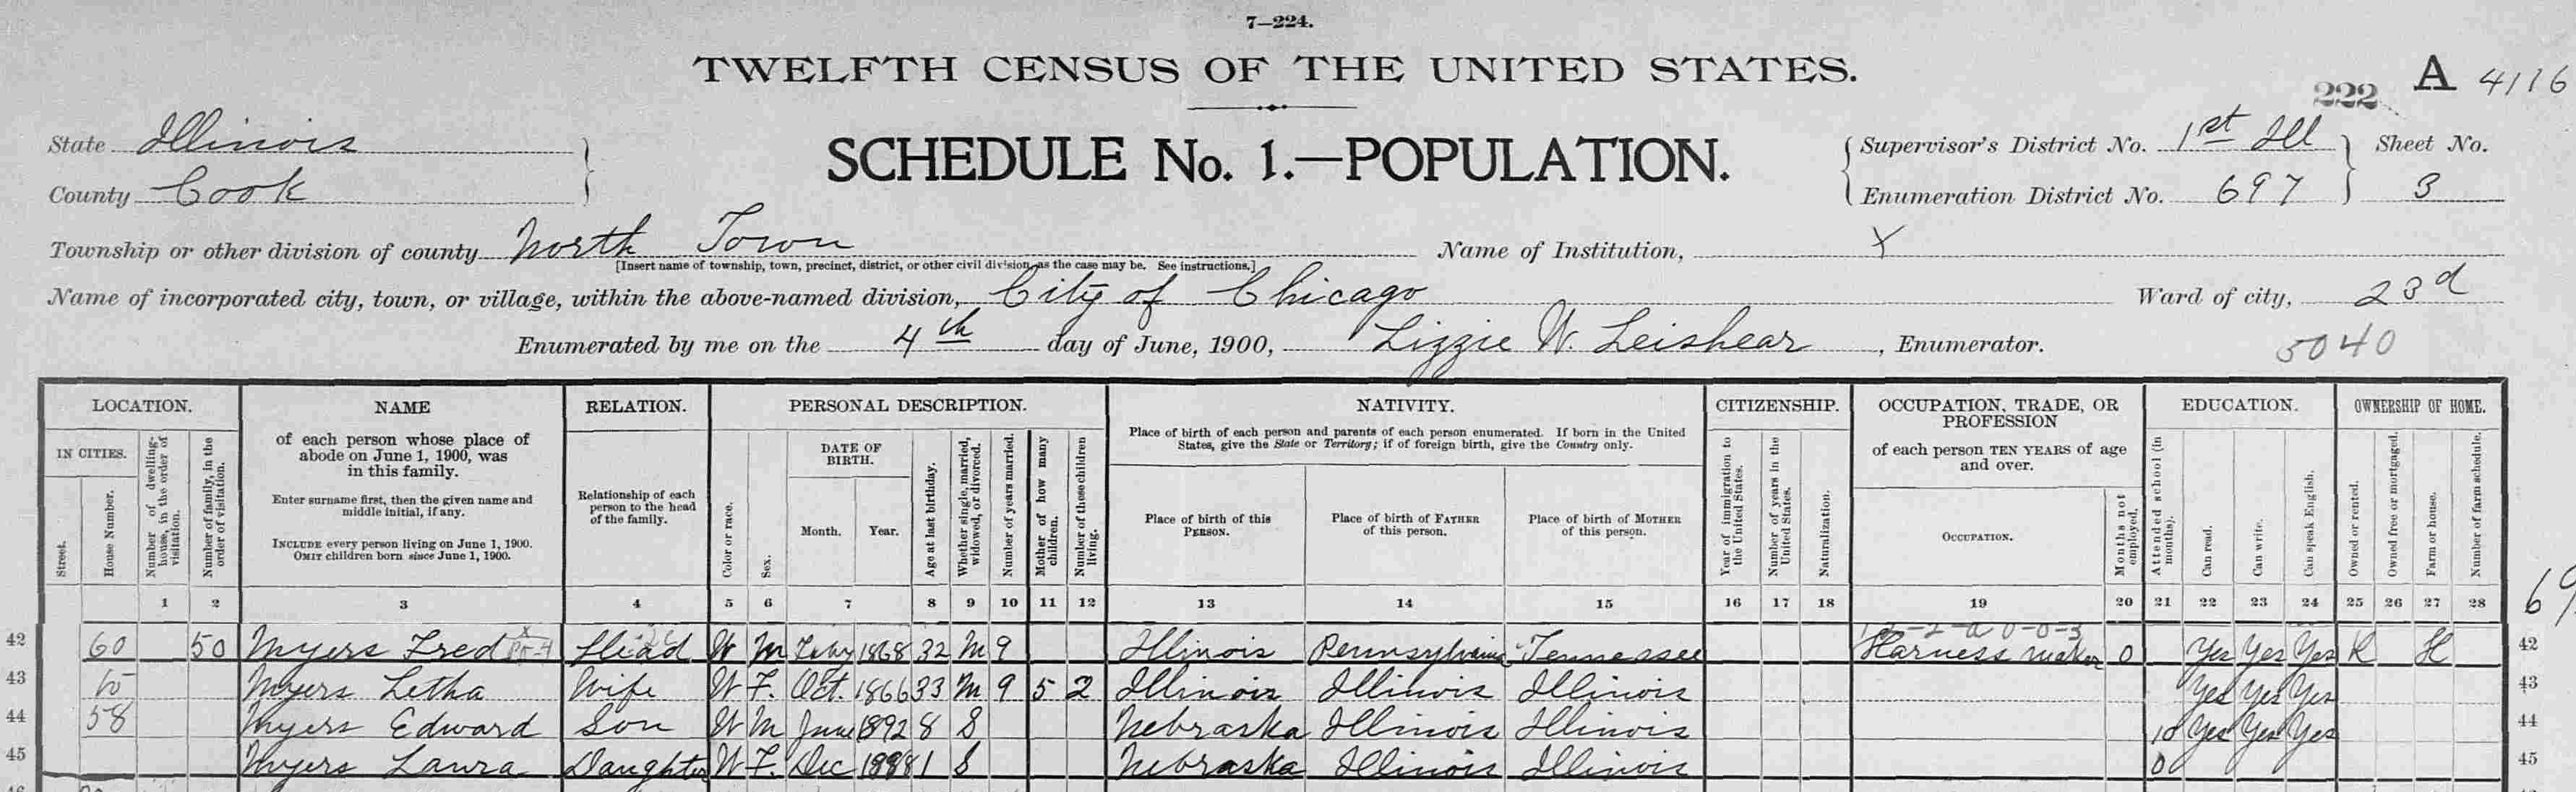 7—224.
TWELFTH CENSUS OF THE UNITED STATES.
222 A 4116
State Illinois
County Cook
SCHEDULE No. 1.—POPULATION.
Supervisor's District No. 1st Ill
Enumeration District No. 697
Sheet No.
3
Township or other division of county North Town Name of Institution, X
[Insert name of township, town, precinct, district, or other civil division, as the case may be. See instructions.]
Name of incorporated city, town, or village, within the above-named division, City of Chicago Ward of city, 23d
Enumerated by me on the 4th day of June, 1900, Lizzie W. Leishear, Enumerator. 5040
LOCATION.
IN CITIES.
Street.
House Number.
Number of dwelling-house, in the order of visitation.
Number of family, in the order of visitation.
NAME
of each person whose place of
abode on June 1, 1900, was
in this family.
Enter surname first, then the given name and
middle initial, if any.
INCLUDE every person living on June 1, 1900.
OMIT children born since June 1, 1900.
RELATION.
Relationship of each
person to the head
of the family.
PERSONAL DESCRIPTION.
Color or race.
Sex.
DATE OF
BIRTH.
Month.
Year.
Age at last birthday.
Whether single, married, widowed, or divorced.
Number of years married.
Mother of how many children.
Number of these children living.
NATIVITY.
Place of birth of each person and parents of each person enumerated. If born in the United
States, give the State or Territory; if of foreign birth, give the Country only.
Place of birth of this
PERSON.
Place of birth of FATHER
of this person.
Place of birth of MOTHER
of this person.
CITIZENSHIP.
Year of immigration to the United States.
Number of years in the United States.
Naturalization.
OCCUPATION, TRADE, OR
PROFESSION
of each person TEN YEARS of age
and over.
OCCUPATION.
Months not employed.
EDUCATION.
Attended school (in months).
Can read.
Can write.
Can speak English.
OWNERSHIP OF HOME.
Owned or rented.
Owned free or mortgaged.
Farm or house.
Number of farm schedule.
1 2 3 4 5 6 7 8 9 10 11 12 13 14 15 16 17 18 19 20 21 22 23 24 25 26 27 28
69
42 60 50 Myers Fred Head W M Feby 1868 32 M 9 Illinois Pennsylvania Tennessee Harness maker 0 Yes Yes Yes R H 42
43 Myers Letha Wife W F. Oct. 1866 33 M 9 5 2 Illinois Illinois Illinois Yes Yes Yes 43
44 58 Myers Edward Son W M June 1892 8 S Nebraska Illinois Illinois 10 Yes Yes Yes 44
45 Myers Laura Daughter W F. Dec 1898 1 S Nebraska Illinois Illinois 0 45